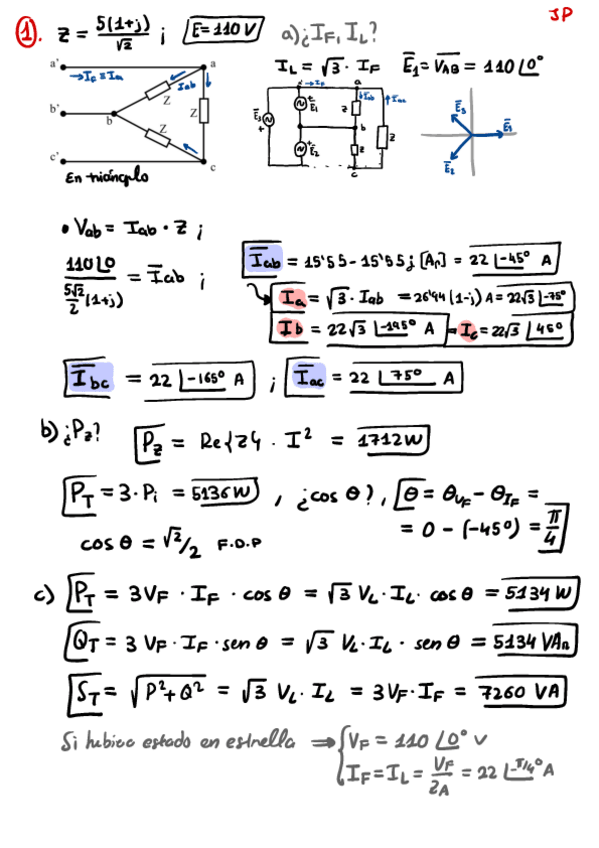 JP
①. Z = 5(1+j)/√2 ; E=110 V a) ¿IF, IL?
IL = √3 · IF E̅1 = V̅AB = 110∠0°
a' → IF ≡ Ia a
Iab
Z
b' b Z
Z
c' c
En triángulo
→IF
E̅3 + E̅1 Z Iab Iac
b Z
E̅2 Z
c
E̅3 E̅1
E̅2
• Vab = Iab · Z ;
110∠0 / (5√2/2 (1+j)) = I̅ab ;
I̅ab = 15'55 - 15'55j [Ar] = 22∠-45° A
Ia = √3 · Iab = 26'94 (1-j) A = 22√3∠-75°
Ib = 22√3∠-195° A - Ic = 22√3∠45°
I̅bc = 22∠-165° A ; I̅ac = 22∠75° A
b) ¿Pz? Pz = Re{Z} · I² = 1712W
PT = 3·Pi = 5136W , ¿cos θ?, θ = θVF - θIF =
= 0 - (-45°) = π/4
cos θ = √2/2 F.D.P
c) PT = 3VF · IF · cos θ = √3 VL·IL· cos θ = 5134 W
QT = 3 VF·IF·sen θ = √3 VL·IL · sen θ = 5134 VAr
ST = √P²+Q² = √3 VL·IL = 3VF·IF = 7260 VA
Si hubiera estado en estrella ⇒ { VF = 110∠0° V
IF = IL = VF/ZA = 22∠-π/4° A